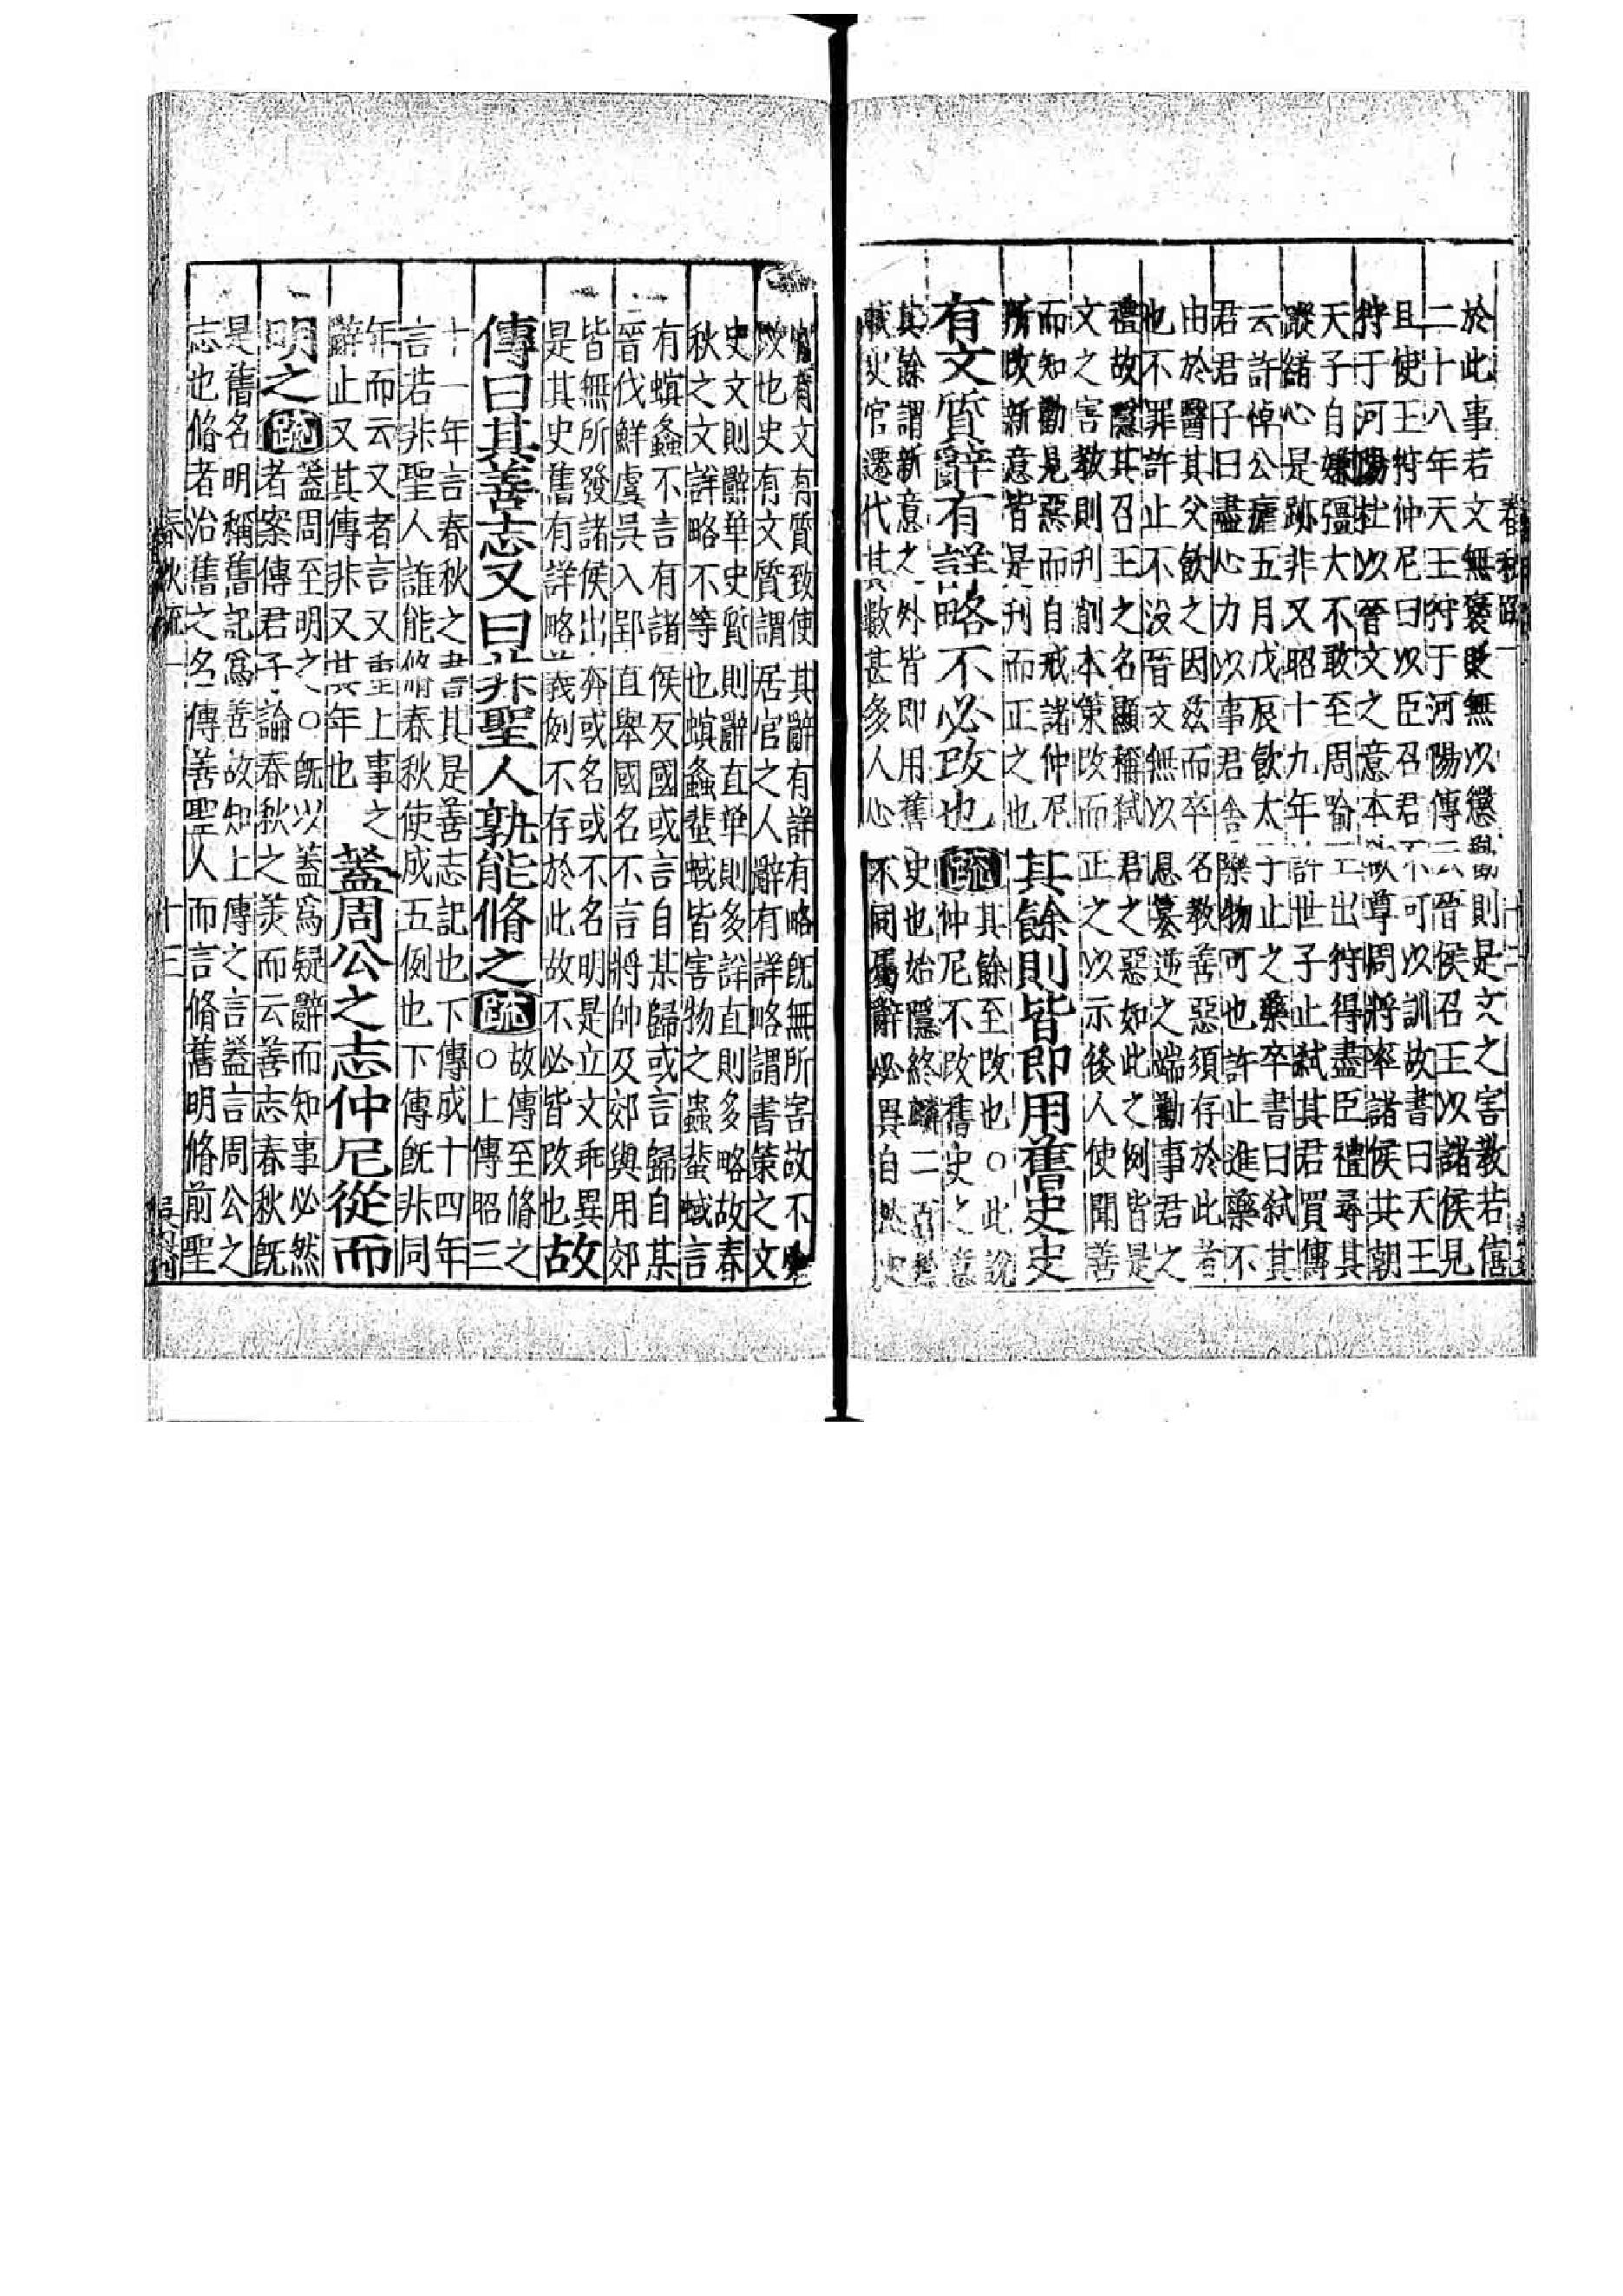 於此事若文無褒貶無以懲勸則是文之害教若僖
二十八年天王狩于河陽傳云晉侯召王以諸侯見
且使王狩仲尼曰以臣召君不可以訓故書曰天王
狩于河陽
以晉文之意本
尊周將率諸侯共朝
天子自嫌彊大不敢至周喻王出狩得盡臣禮尋其
蹤緒心是跡非又昭十九年許世子止弒其君買傳
云許悼公瘧五月戊辰飲太子止之藥卒書曰弒其
君君子曰盡心力以事君舍藥物可也許止進藥不
由於醫其父飲之因茲而卒名教善惡須存於此者
也不罪許止不沒晉文無以忌篡逆之端勸事君之
禮故隱其召王之名顯稱弒君之惡如此之例皆是
文之害教則刊削本策改而正之以示後人使聞善
而知勸見惡而自戒諸仲尼
所改新意皆是刊而正之也
其餘則皆即用舊史史
有文質辭有詳略不必改也
疏
其餘至改也○此說
仲尼不改舊史之意
其餘謂新意之外皆即用舊史也始隱終麟二百
史官遷代其數甚多人心不同屬辭必異自然史
官有文有質致使其辭有詳有略既無所害故不
改也史有文質謂居官之人辭有詳略謂書策之文
史文則辭華史質則辭直華則多詳直則多略故春
秋之文詳略不等也螟螽蜚蜮皆害物之蟲蜚蜮言
有螟螽不言有諸侯反國或言自某歸或言歸自某
晉伐鮮虞吳入郢直舉國名不言將帥及郊與用郊
皆無所發諸侯出奔或名或不名明是立文乖異
是其史舊有詳略義例不存於此故不必皆改也
故
傳曰其善志又曰非聖人孰能脩之
疏
故傳至脩之
○上傳昭三
十一年言春秋之書其是善志記也下傳成十四年
言若非聖人誰能脩春秋使成五例也下傳既非同
年而云又者言又重上事之
辭止又其傳非又其年也
蓋周公之志仲尼從而
明之
疏
蓋周至明之○既以蓋為疑辭而知事必然
者案傳君子論春秋之美而云善志春秋既
是舊名明稱舊記為善故知上傳之言蓋言周公之
志也脩者治舊之名傳善聖人而言脩舊明脩前聖
春秋疏一
十三